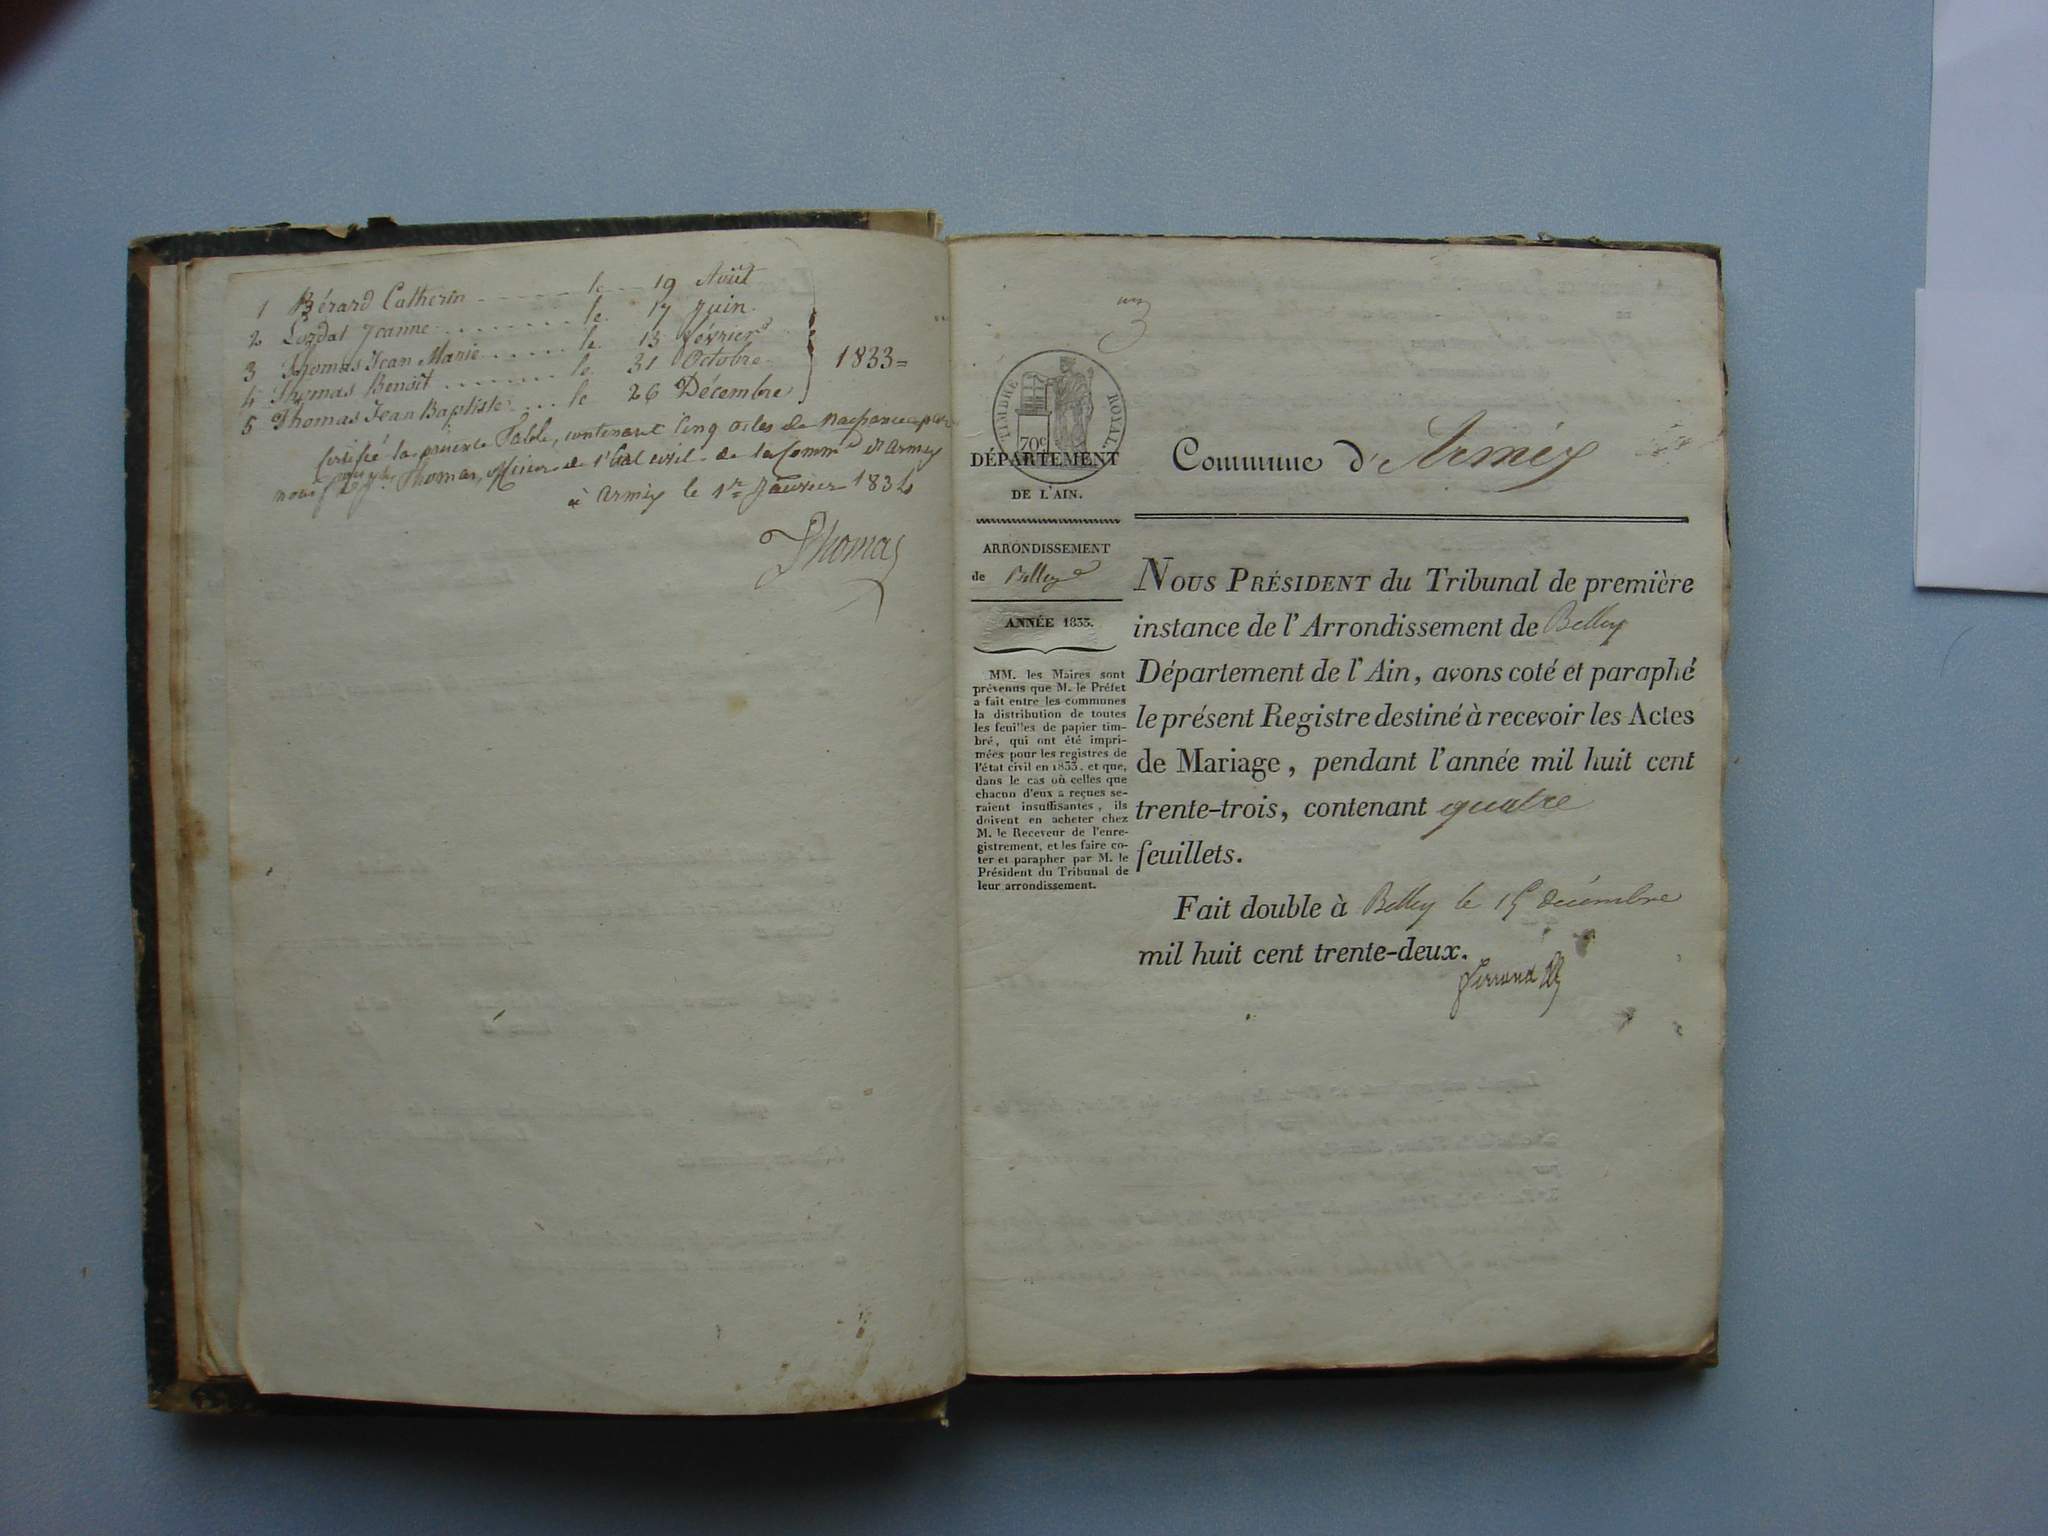 1 Bérard Catherin - - - - - - le - - 19 Août
2 Lordat Jeanne - - - - - - - - le. 17 Juin
3 Thomas Jean Marie - - - - - - le. 13 février
4 Thomas Benoît - - - - - - - - le. 31 Octobre
5 Thomas Jean Baptiste - - - le 26 Décembre
1833=
Certifié la présente Table, contenant Cinq actes de Naissance par
nous Thomas, Officier de l'État civil de la Comm. d'Armix
à Armix le 1er Janvier 1834
Thomas
TIMBRE ROYAL.
70c
DÉPARTEMENT
DE L'AIN.
Commune d'Armix
ARRONDISSEMENT
de Belley
ANNÉE 1833.
MM. les Maires sont
prévenus que M. le Préfet
a fait entre les communes
la distribution de toutes
les feuilles de papier tim-
bré, qui ont été impri-
mées pour les registres de
l'état civil en 1833, et que,
dans le cas où celles que
chacun d'eux a reçues se-
raient insuffisantes, ils
doivent en acheter chez
M. le Receveur de l'enre-
gistrement, et les faire co-
ter et parapher par M. le
Président du Tribunal de
leur arrondissement.
NOUS PRÉSIDENT du Tribunal de première
instance de l'Arrondissement de Belley
Département de l'Ain, avons coté et paraphé
le présent Registre destiné à recevoir les Actes
de Mariage, pendant l'année mil huit cent
trente-trois, contenant quatre
feuillets.
Fait double à Belley le 15 décembre
mil huit cent trente-deux.